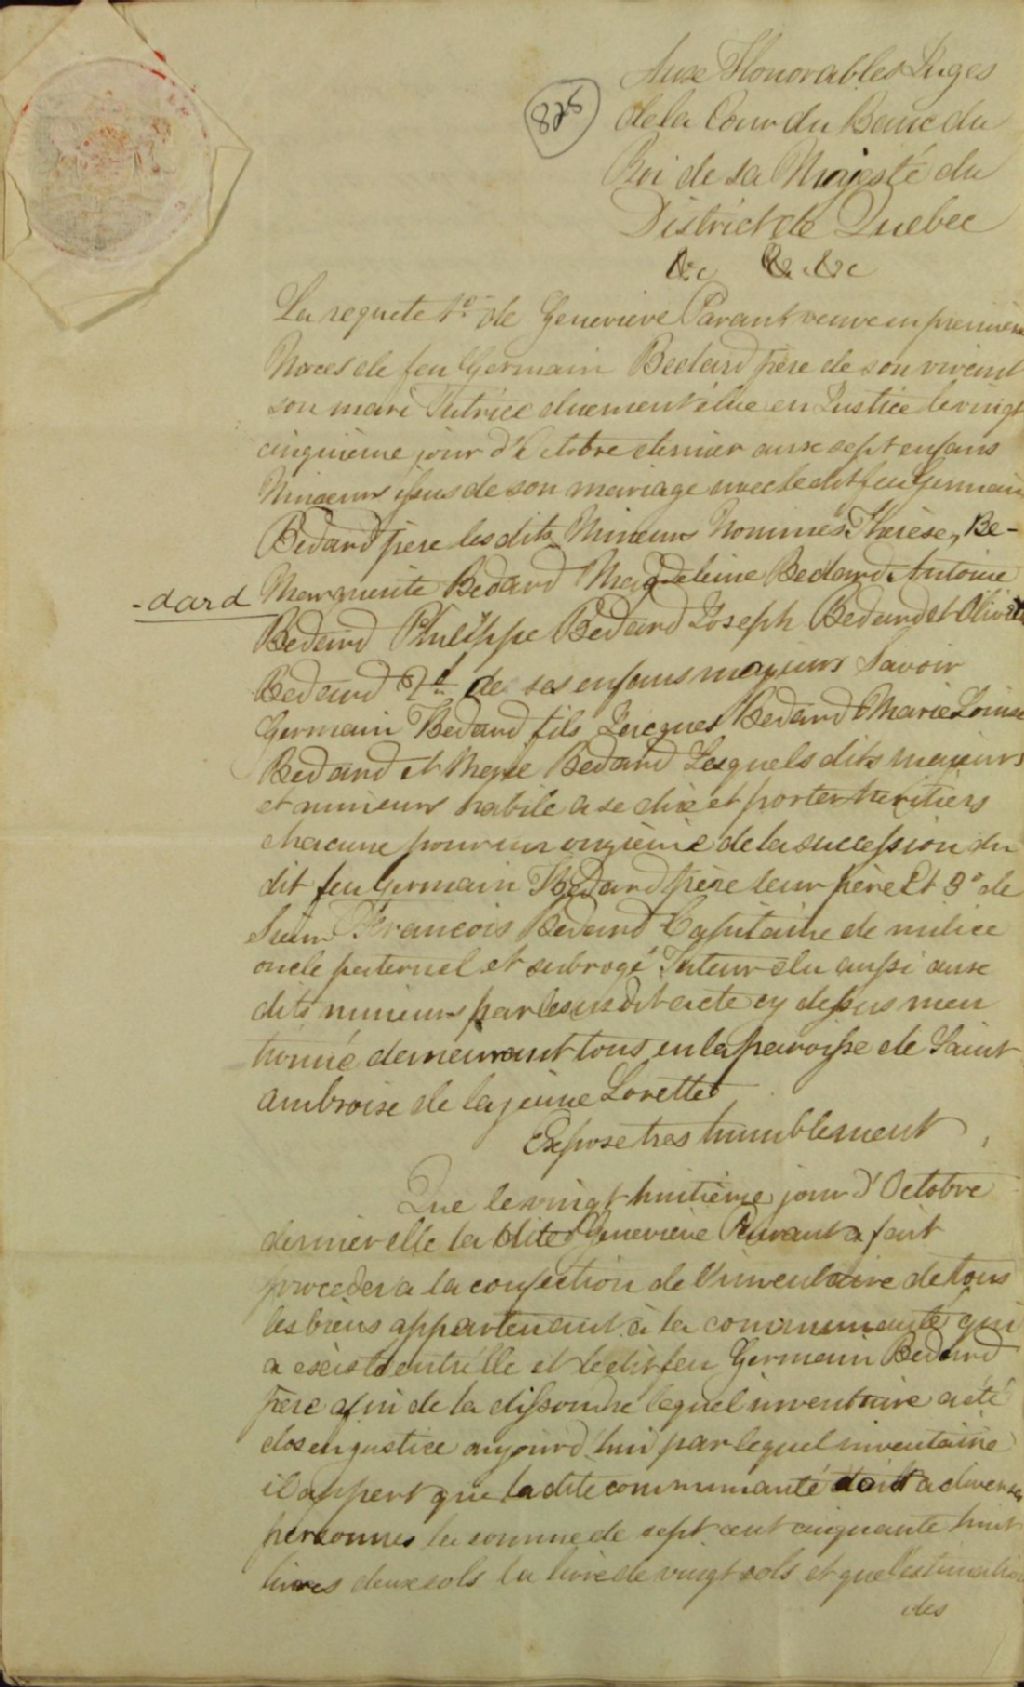 Aux Honorables Juges
825
de la Cour du Banc du
Roi de sa Majesté du
District de Quebec
&c &c &c
La requete 1º de Genevieve Parant veuve en premiere
Noces de feu Germain Bedard père de son vivant
son mari Tutrice duement élue en Justice le vingt
cinquième jour d'Octobre dernier aux sept enfans
Mineurs issus de son mariage avec le dit feu Germain
Bedard père les dits Mineurs Nommés Therèse, Be-
-dard Marguerite Bedard Magdeleine Bedard Antoine
Bedard Philippe Bedard Joseph Bedard et Olivier
Bedard 2d de ses enfans majeurs Savoir
Germain Bedard fils Jacques Bedard Marie Louise
Bedard et Bedard Lesquels dits majeurs
et mineurs habile a se dire et porter heritiers
chacune pour un onzième de la succession du
dit feu Germain Bedard père leur père Et 3º de
Sieur Francois Bedard Capitaine de milice
oncle paternel et subrogé Tuteur élu aussi aux
dits mineurs par le susdit acte cy dessus men
tionné demeurant tous en la paroisse de Saint
Ambroise de la jeune Lorette
Expose tres humblement
Que le vingt huitième jour d'Octobre
dernier elle la dite Genevieve Parant a fait
proceder a la confection de l'inventaire de tous
les biens appartenant à la communauté qui
a existé entr'elle et le dit feu Germain Bedard
père afin de la dissoudre lequel inventaire a été
clos en justice aujourd'hui par lequel inventaire
il appert que la dite communauté doit a diverses
personnes la somme de sept cent cinquante huit
livres deux sols la livre de vingt sols et que l'estimation
des